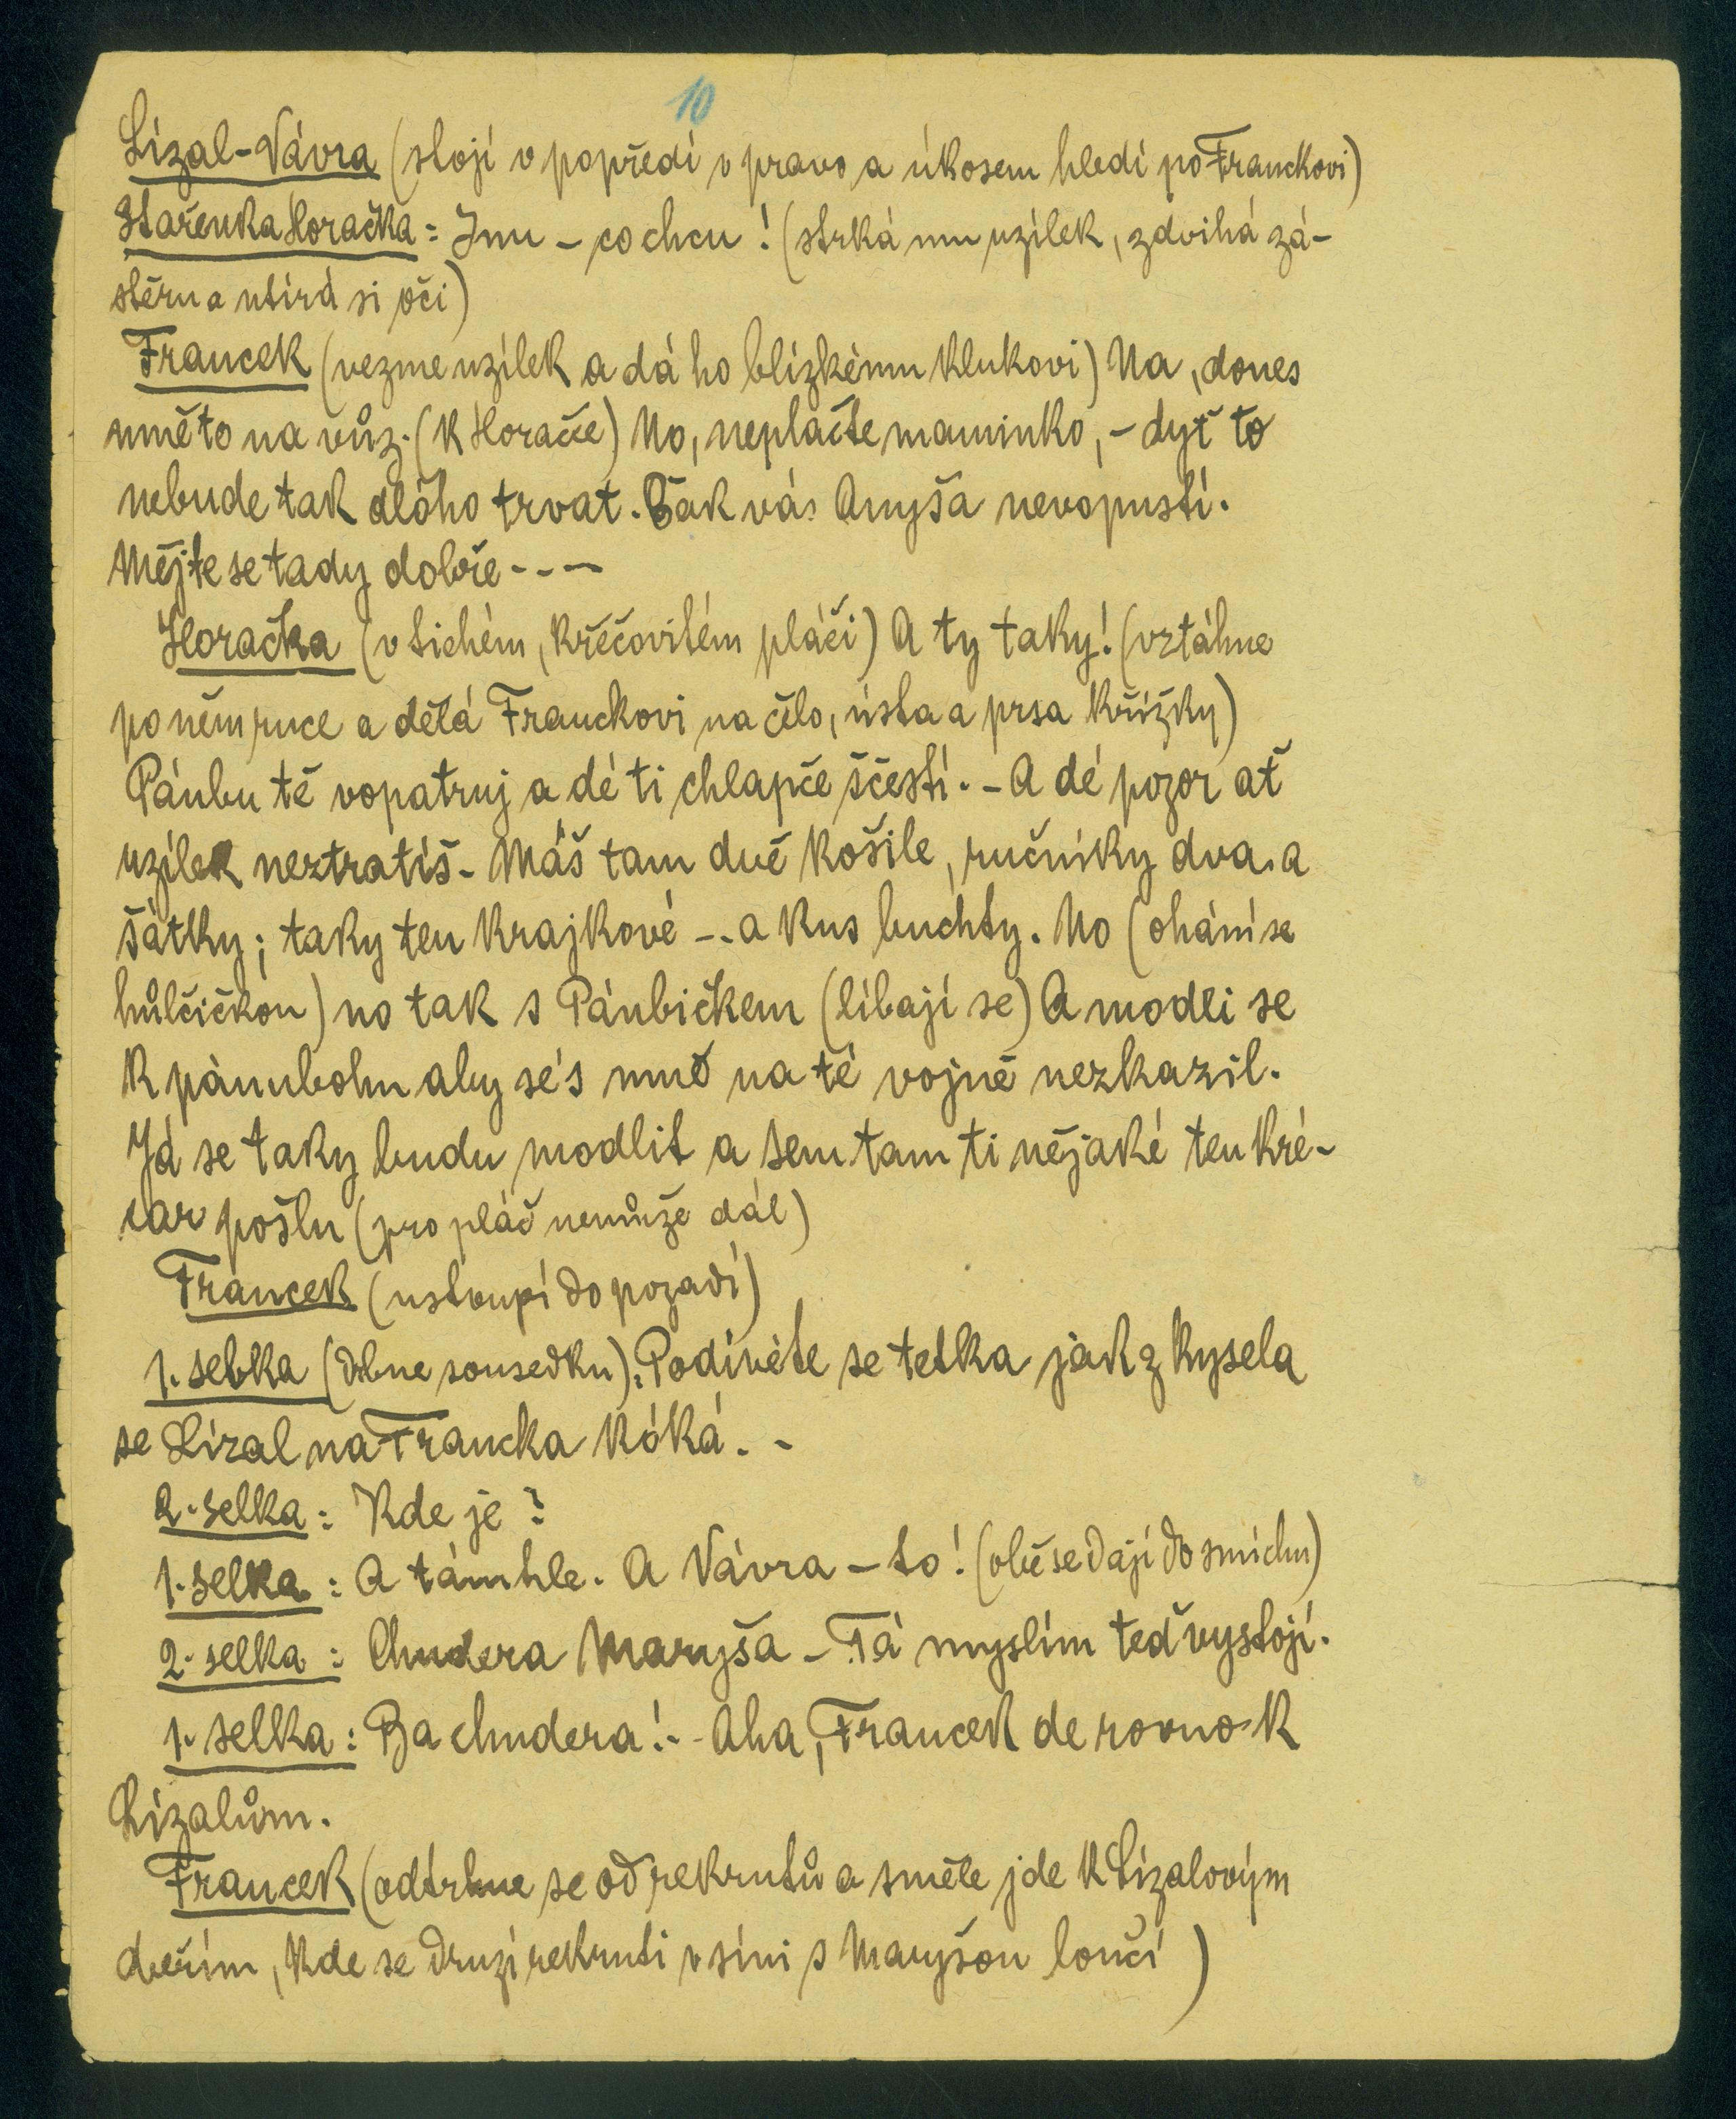 10
Lízal-Vávra (stojí v popředí v pravo a úkosem hledí po Franckovi)
Stařenka Horačka: Inu - co chcu! (strká mu uzílek, zdvihá zá-
stěru a utírá si oči)
Francek (vezme uzílek a dá ho blízkému klukovi) Na, dones
mě to na vůz. (K Horačce) No, neplačte maminko, - dyť to
nebude tak dlóho trvat. Šak vás Anyša nevopustí.
Mějte se tady dobře - - -
Horačka (v tichém, křečovitém pláči) A ty taky! (vztáhne
po něm ruce a dělá Franckovi na čelo, ústa a prsa křížky)
Pánbu tě vopatruj a dé ti chlapče ščestí. - A dé pozor ať
uzílek neztratíš - Máš tam dvě košile, ručníky dva a
šátky; taky ten krajkové - . a kus buchty. No (ohání se
hůlčičkou) no tak s Pánbíčkem (líbají se) A modli se
k pánubohu aby sé's mně na té vojně nezkazil.
Já se taky budu modlit a sem tam ti nějaké ten kré-
car pošlu (pro pláč nemůže dál)
Francek (ustoupí do pozadí)
1. selka (drbne sousedku): Podívéte se tetka jak zkysela
se Lízal na Francka kóká. -
2. selka: Kde je?
1. selka: A támhle. A Vávra - to! (obě se dají do smíchu)
2. selka: Chudera Maryša - Tá myslím teď vystojí.
1. selka: Ba chudera! - - Aha, Francek de rovno k
Lízalům.
Francek (odtrhne se od rekrutů a směle jde k Lízalovým
dveřím, kde se druzí rekruti v síni s Maryšou loučí)